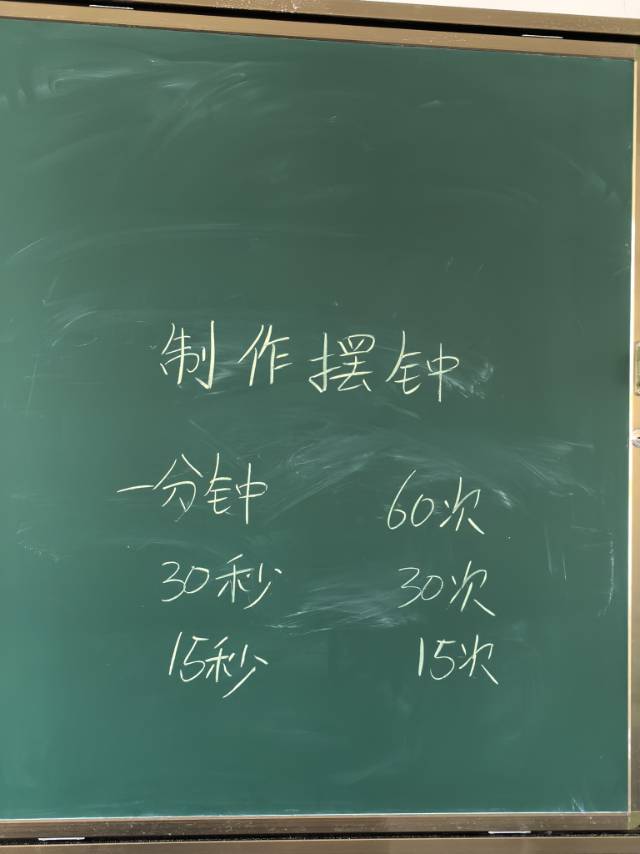 制作摆钟
一分钟 60次
30秒 30次
15秒 15次